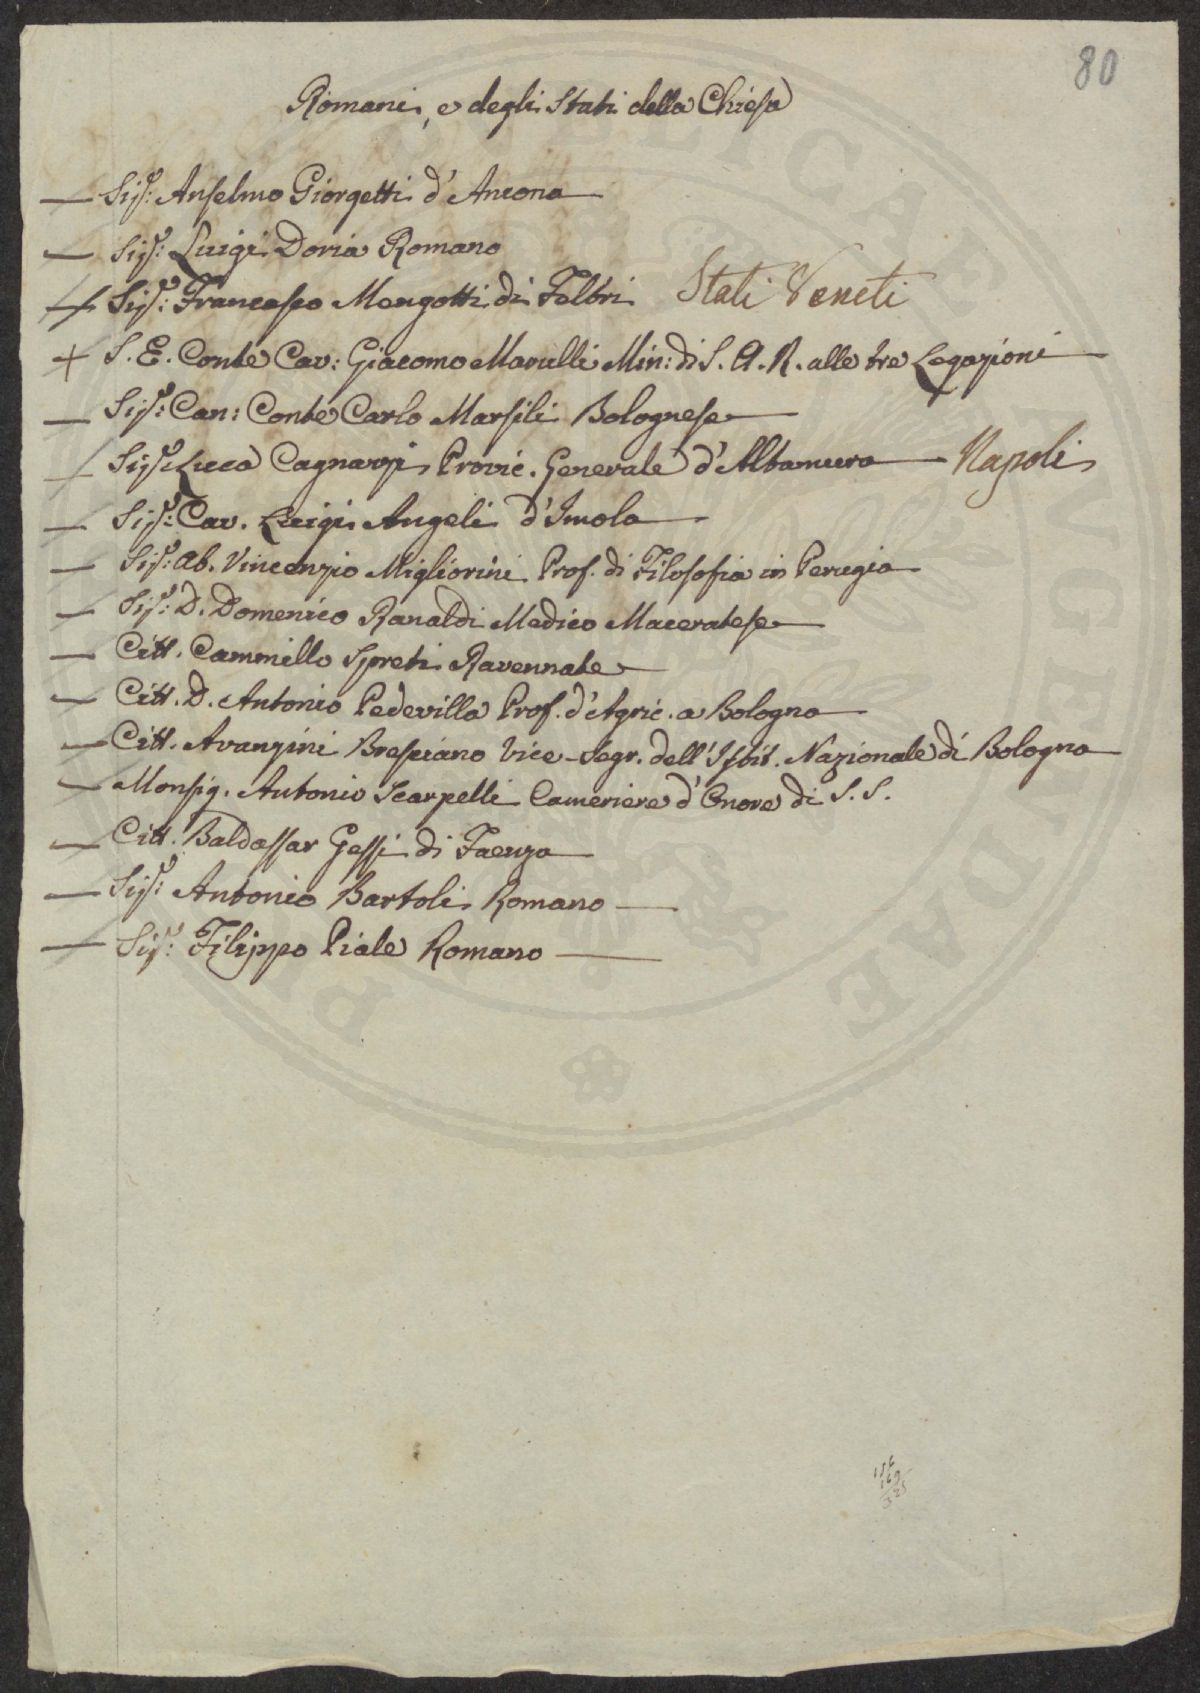 80
Romani, e degli Stati della Chiesa
Sig.r: Anselmo Giorgetti d'Ancona
Sig.r: Luigi Doria Romano
Sig.r: Francesco Mengotti di Feltri Stati Veneti
S. E. Conte Cav: Giacomo Marulli Min: di S. A. R. alle tre Legazioni
Sig.r: Can: Conte Carlo Marsili Bolognese
Sig.r: Luca Cagnazzi Provic. Generale d'Altamura Napoli
Sig.r: Cav. Luigi Angeli d'Imola
Sig.r: Ab. Vincenzio Migliorini Prof. di Filosofia in Perugia
Sig.r: D. Domenico Ranaldi Medico Maceratese
Citt. Cammillo Spreti Ravennate
Citt. D. Antonio Pedevilla Prof. d'Agric. a Bologna
Citt. Avanzini Bresciano Vice-Segr. dell'Istit. Nazionale di Bologna
Monsig. Antonio Scarpelli Cameriere d'Onore di S. S.
Citt. Baldassar Gessi di Faenza
Sig.r: Antonio Bartoli Romano
Sig.r: Filippo Piale Romano